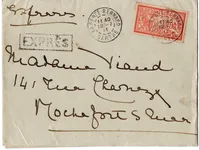 Express
EXPRÈS
Madame Viaud
141 rue Chanzy
Rochefort s mer